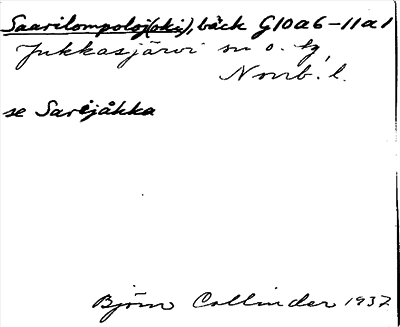 Saarilompoloj(oki), bäck G10a6-11a1
Jukkasjärvi sn o. tg,
Norrb. l.
se Sarejåkka
Björn Collinder 1937.